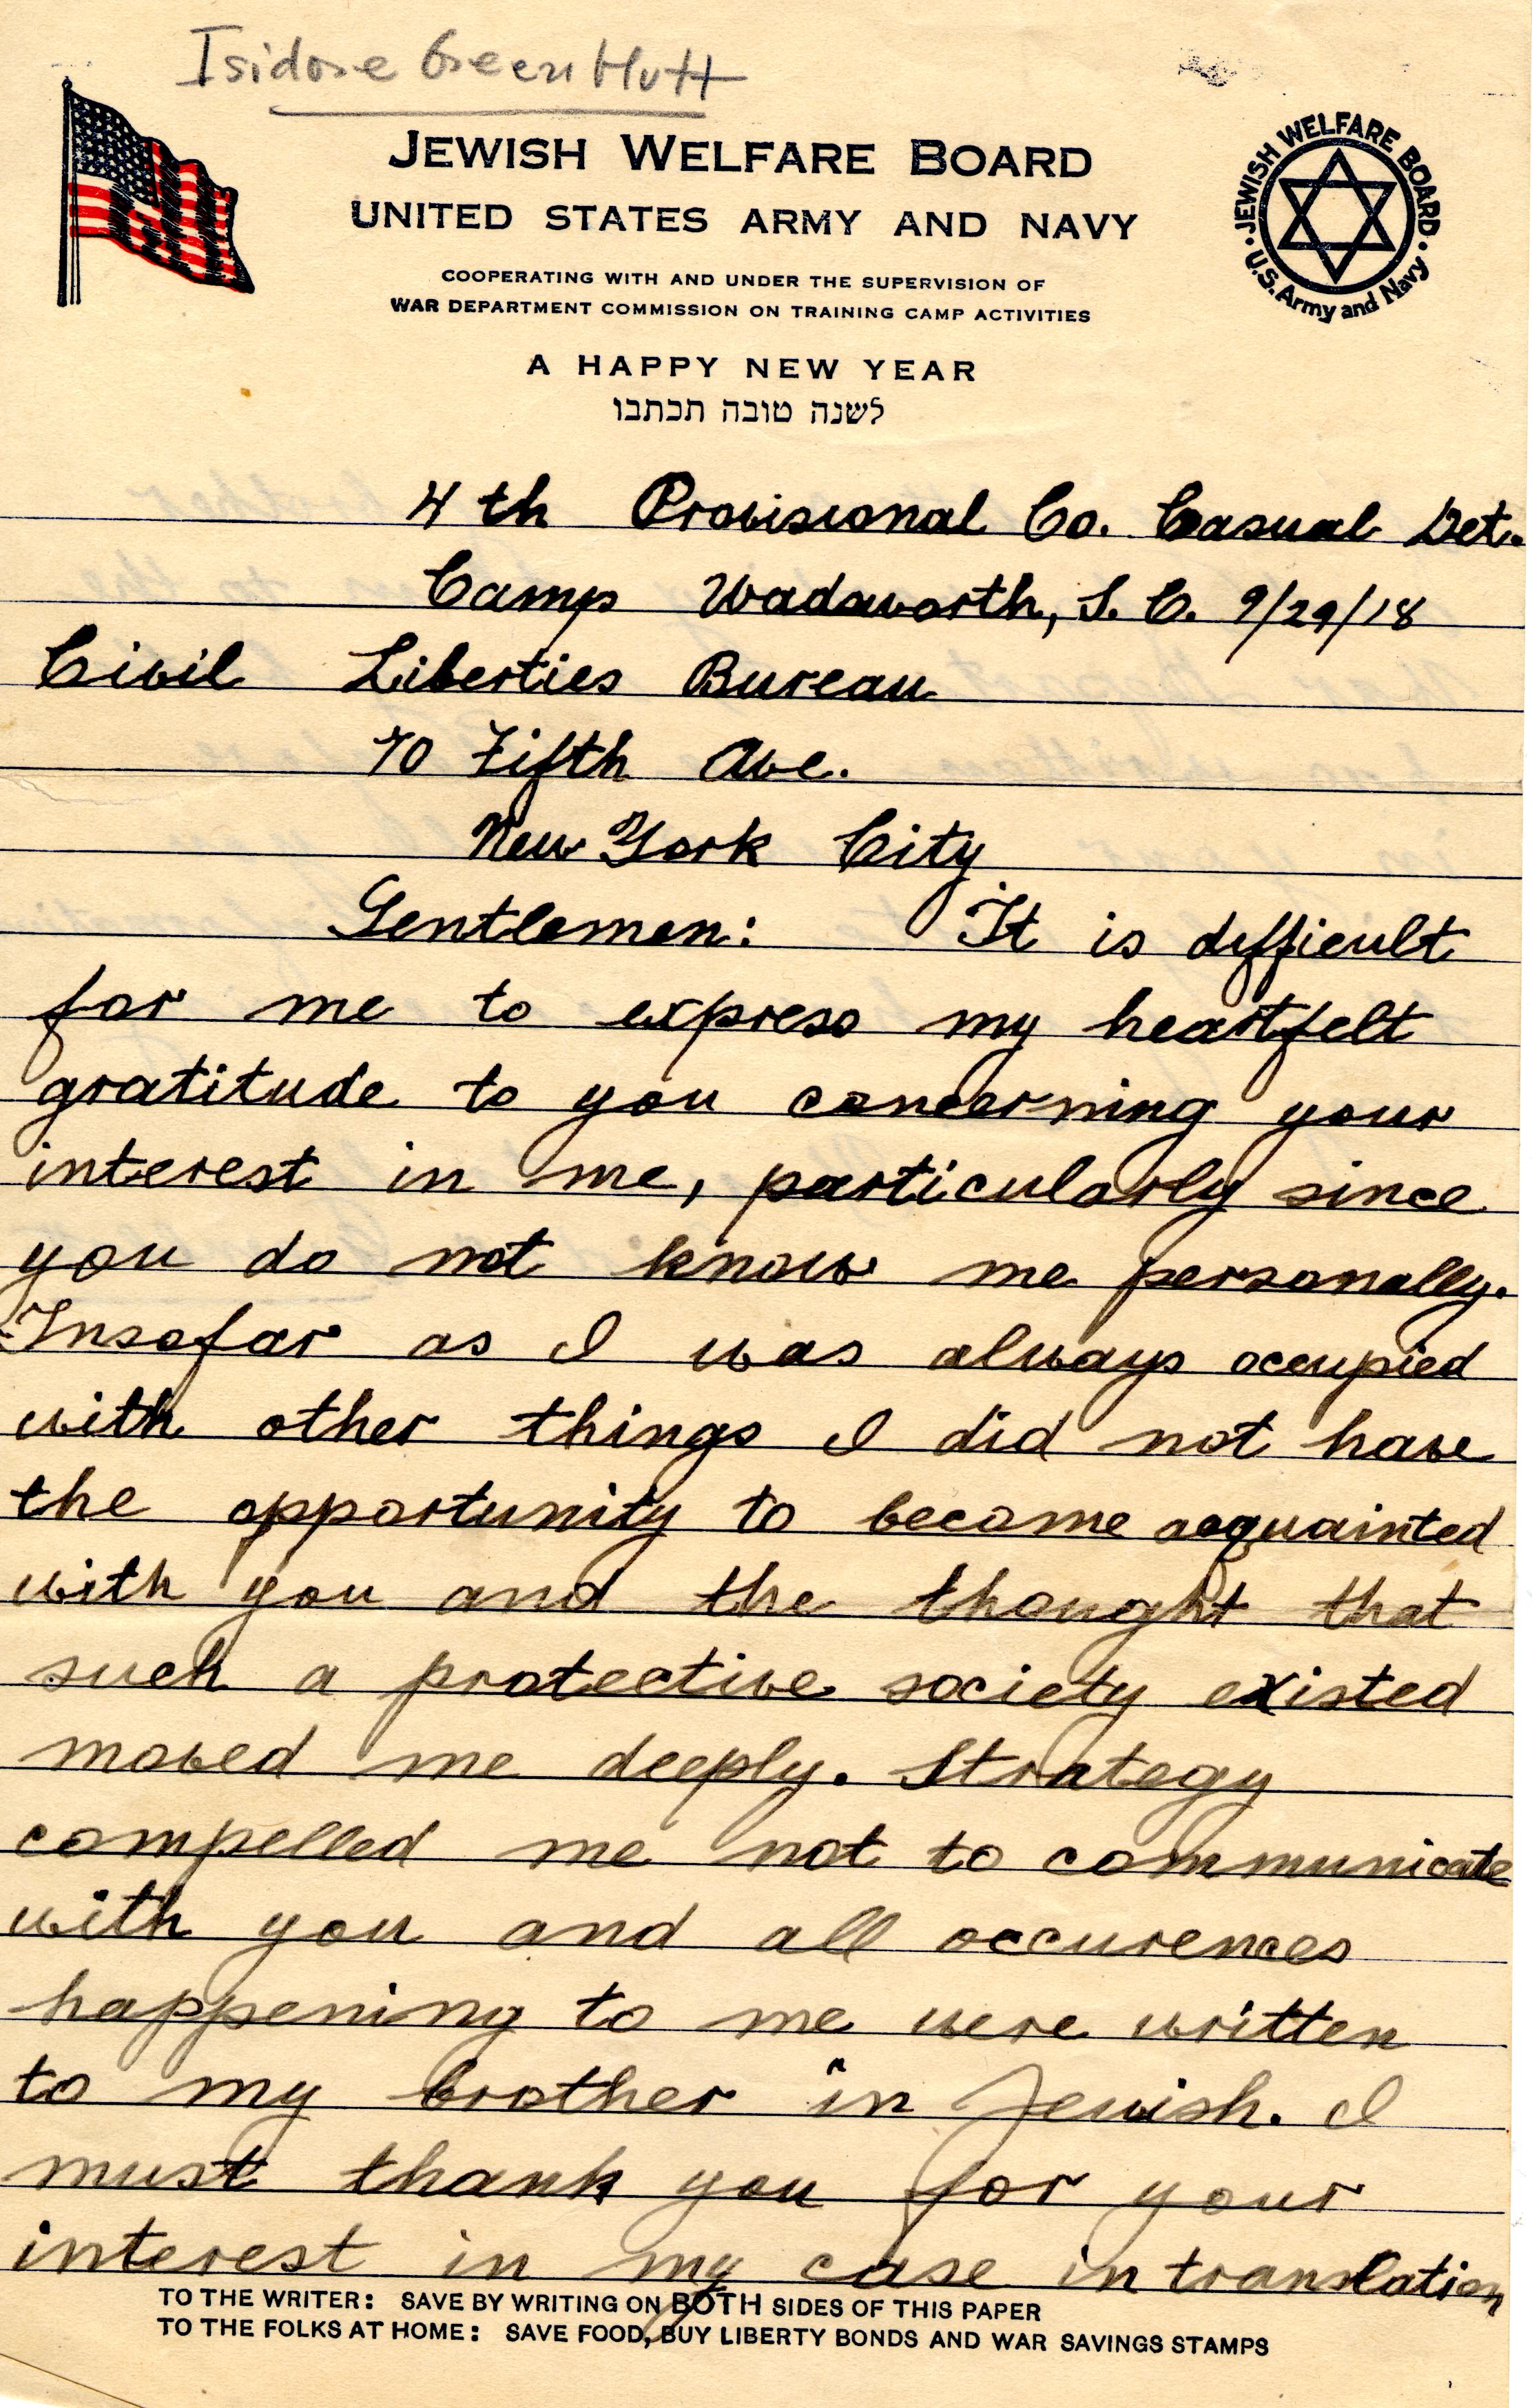 Isidore Greenblutt
JEWISH WELFARE BOARD
UNITED STATES ARMY AND NAVY
COOPERATING WITH AND UNDER THE SUPERVISION OF
WAR DEPARTMENT COMMISSION ON TRAINING CAMP ACTIVITIES
A HAPPY NEW YEAR
לשנה טובה תכתבו
JEWISH WELFARE BOARD · U.S. Army and Navy ·
4th Provisional Co. Casual Det.
Camp Wadsworth, S. C. 9/29/18
Civil Liberties Bureau
70 Fifth Ave.
New York City
Gentlemen: It is difficult
for me to express my heartfelt
gratitude to you concerning your
interest in me, particularly since
you do not know me personally.
Insofar as I was always occupied
with other things I did not have
the opportunity to become acquainted
with you and the thought that
such a protective society existed
moved me deeply. Strategy
compelled me not to communicate
with you and all occurences
happening to me were written
to my brother in Jewish. I
must thank you for your
interest in my case in translation
TO THE WRITER: SAVE BY WRITING ON BOTH SIDES OF THIS PAPER
TO THE FOLKS AT HOME: SAVE FOOD, BUY LIBERTY BONDS AND WAR SAVINGS STAMPS